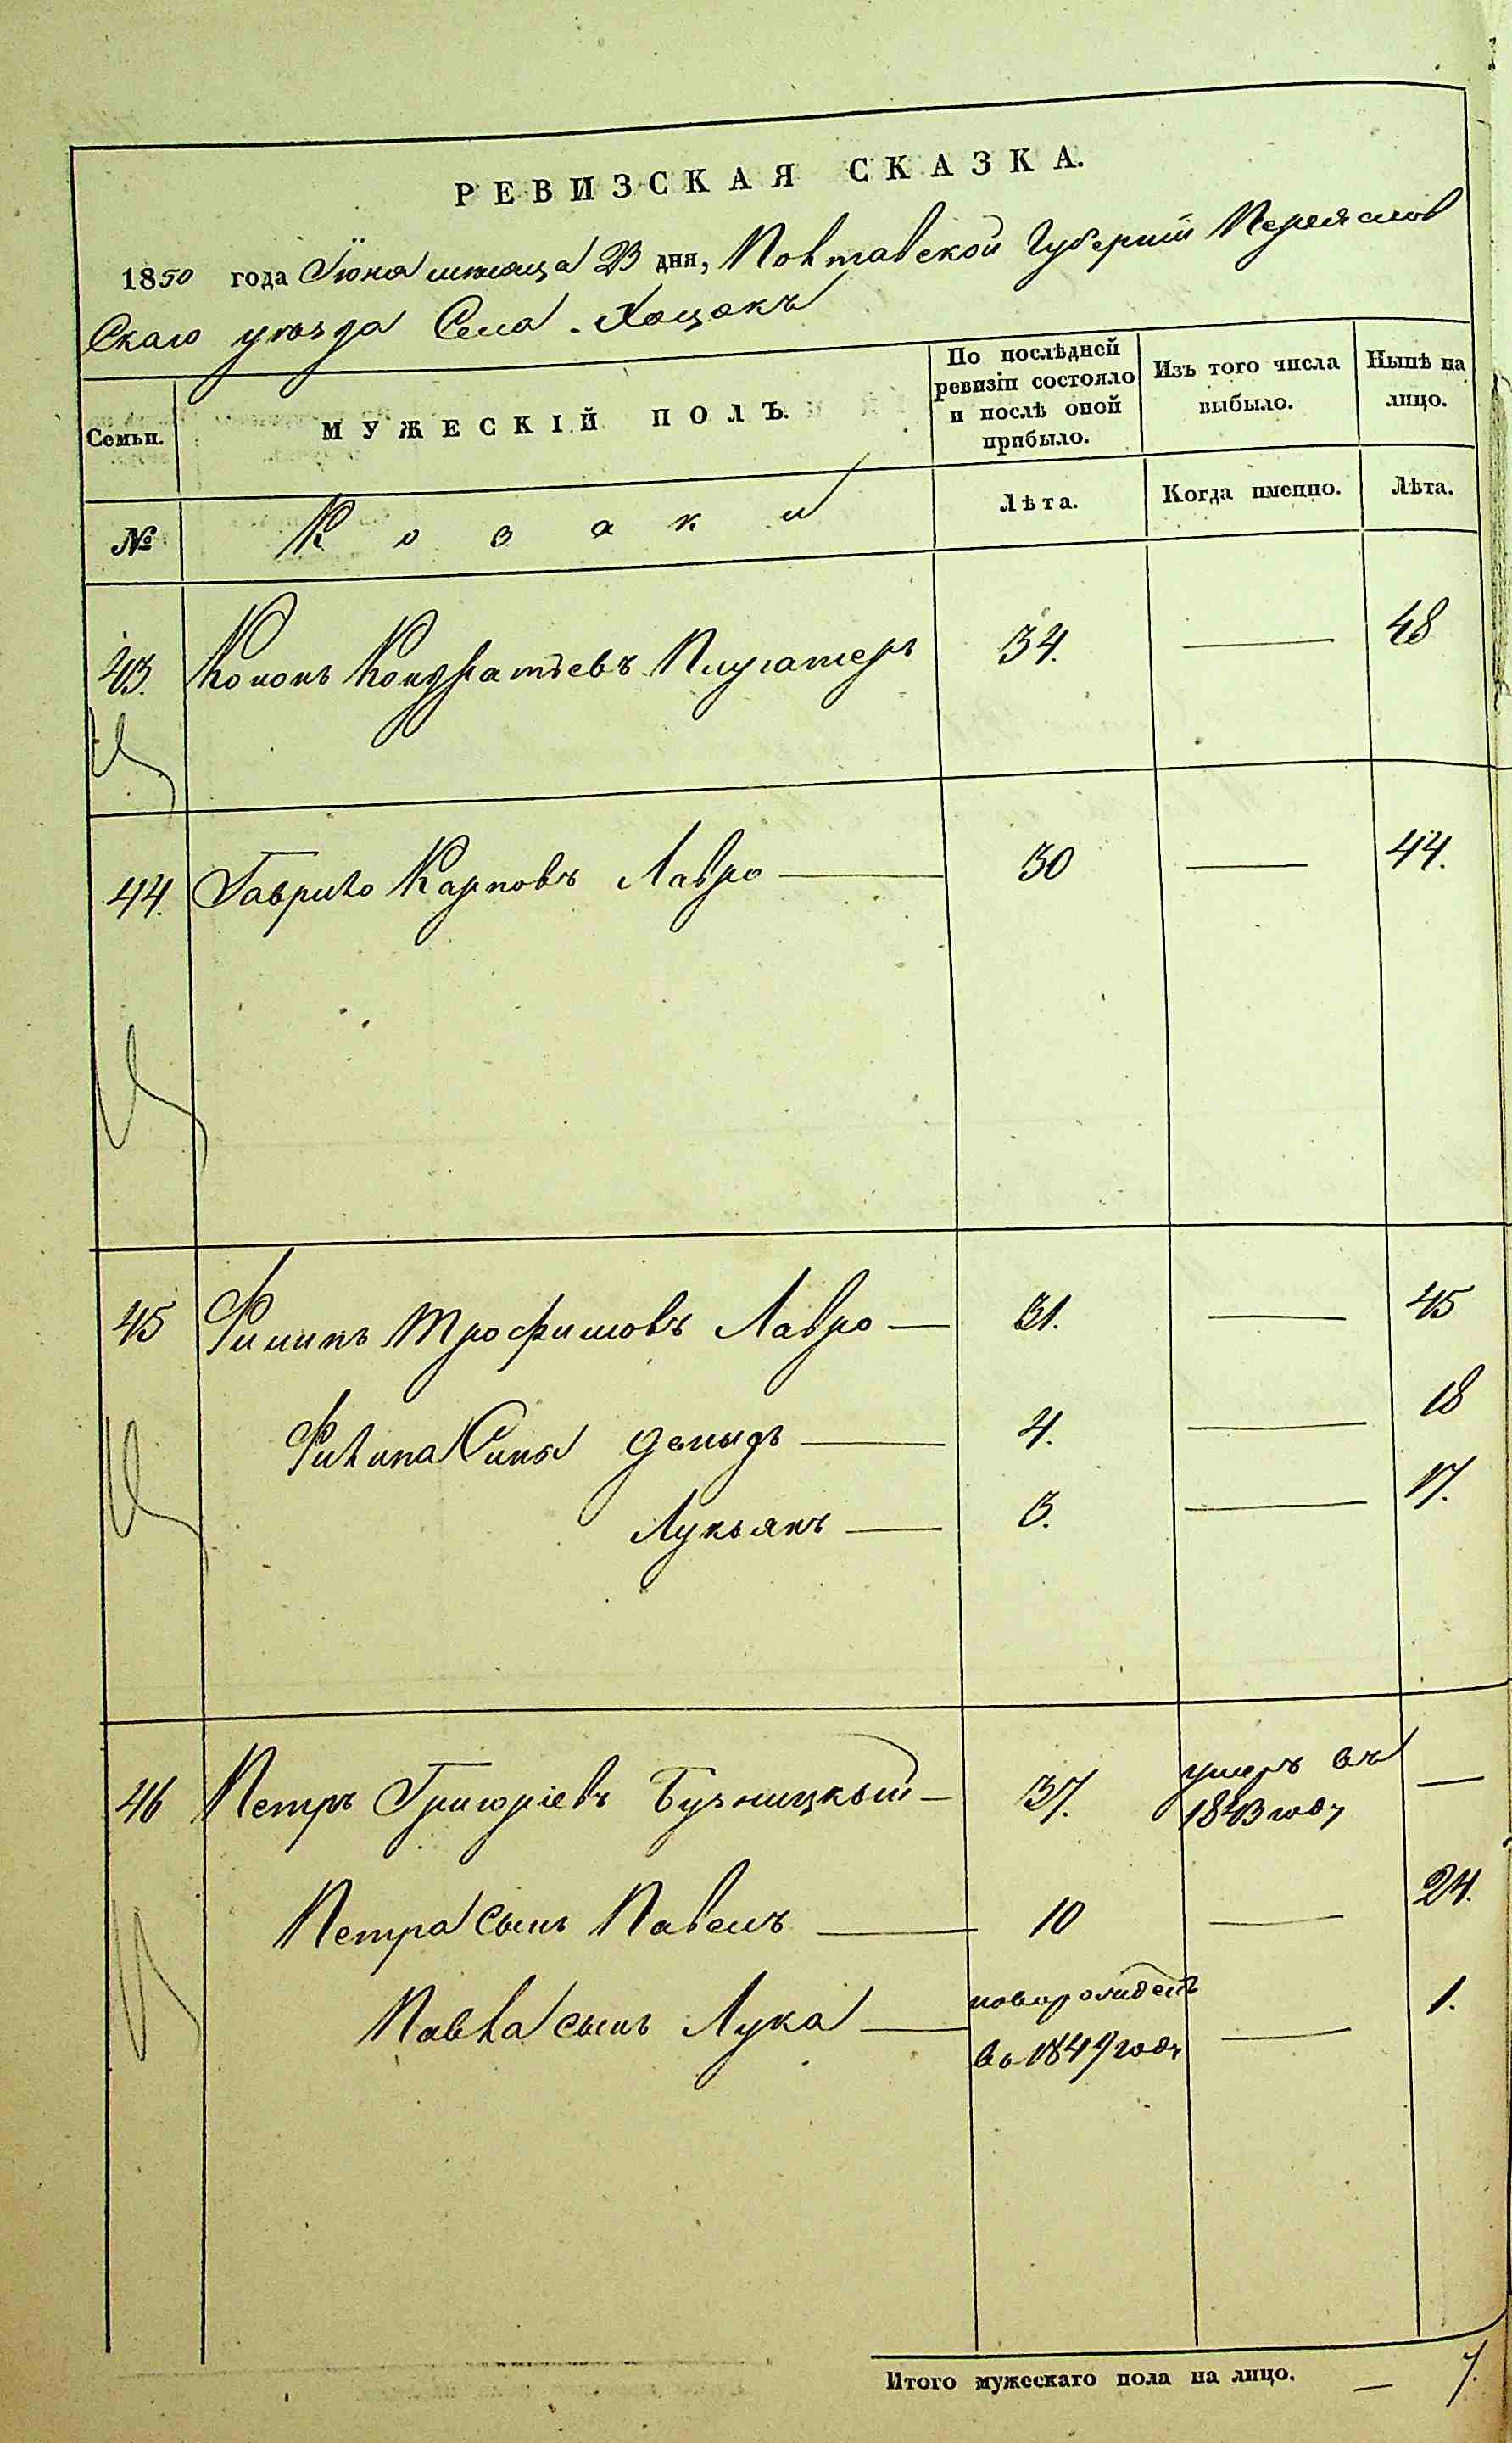 РЕВИЗСКАЯ СКАЗКА.
1850 года Іюня месяца 23 дня, Полтавской Губерніи Переяслов
Скаго уезда Села Хоцокъ
Семьи. МУЖЕСКІЙ ПОЛЪ. По послѣдней ревизіи состояло и послѣ оной прибыло. Изъ того числа выбыло. Нынѣ на лицо.
№ Козаки Лѣта. Когда именно. Лѣта.
43. Кононъ Кондратьевъ 34. — 48
44. Гаврило Карповъ Лавро — 30 — 44.
45 Филипъ Трофимовъ Лавро — 31. — 45
Филипа Сины Демидъ — 4. — 18
Лукьянъ — 3. — 17.
46 Петръ Григоріевъ — 37. умеръ въ 1843 году —
Петра сынъ Павелъ — 10 — 24.
Павла сынъ Лука — новорожденъ во 1849 году — 1.
Итого мужескаго пола на лицо. — 7.